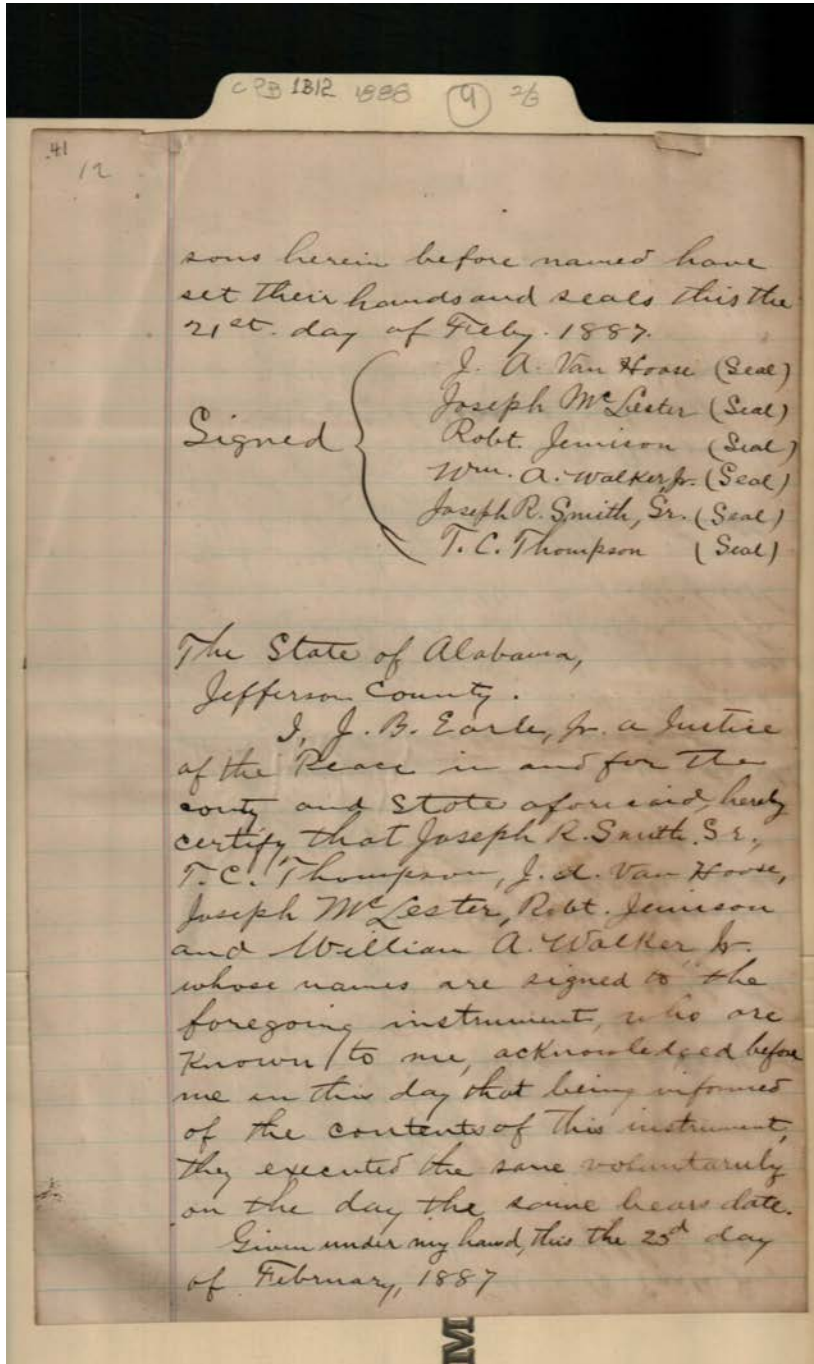 CPB 1B12 1888 9 2/3
41
12
sons herein before named have
set their hands and seals this the
21st. day of Feby. 1887.
J. A. Van Hoose (Seal)
Joseph McLester (Seal)
Signed
Robt. Jemison (Seal)
Wm. A. Walker, Jr. (Seal)
Joseph R. Smith, Sr. (Seal)
T. C. Thompson (Seal)
The State of Alabama,
Jefferson County.
I, J. B. Earle, Jr. a Justice
of the Peace in and for the
conty and State aforesaid, hereby
certify that Joseph R. Smith, Sr.,
T. C. Thompson, J. A. Van Hoose,
Joseph McLester, Robt. Jemison
and William A. Walker Jr.
whose names are signed to the
foregoing instrument, who are
Known to me, acknowledged before
me on this day that being informed
of the contents of this instrument,
they executed the same voluntarily
on the day the same bears date.
Given under my hand, this the 23d day
of February, 1887
M